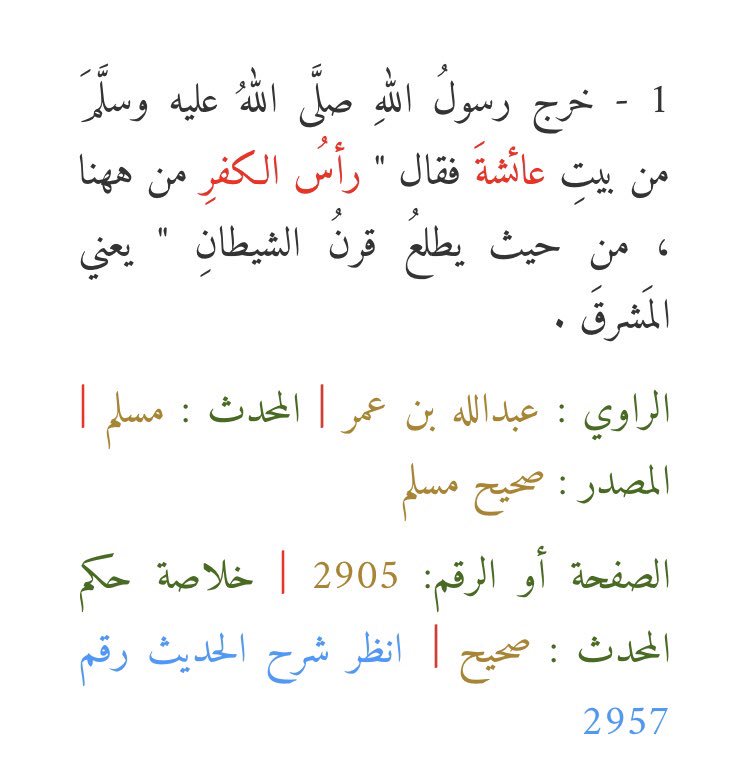 1 - خرج رسولُ اللهِ صلَّى اللهُ عليه وسلَّمَ
من بيتِ عائشةَ فقال " رأسُ الكفرِ من ههنا
، من حيث يطلعُ قرنُ الشيطانِ " يعني
المَشرقَ .
الراوي : عبدالله بن عمر | المحدث : مسلم |
المصدر : صحيح مسلم
الصفحة أو الرقم: 2905 | خلاصة حكم
المحدث : صحيح | انظر شرح الحديث رقم
2957